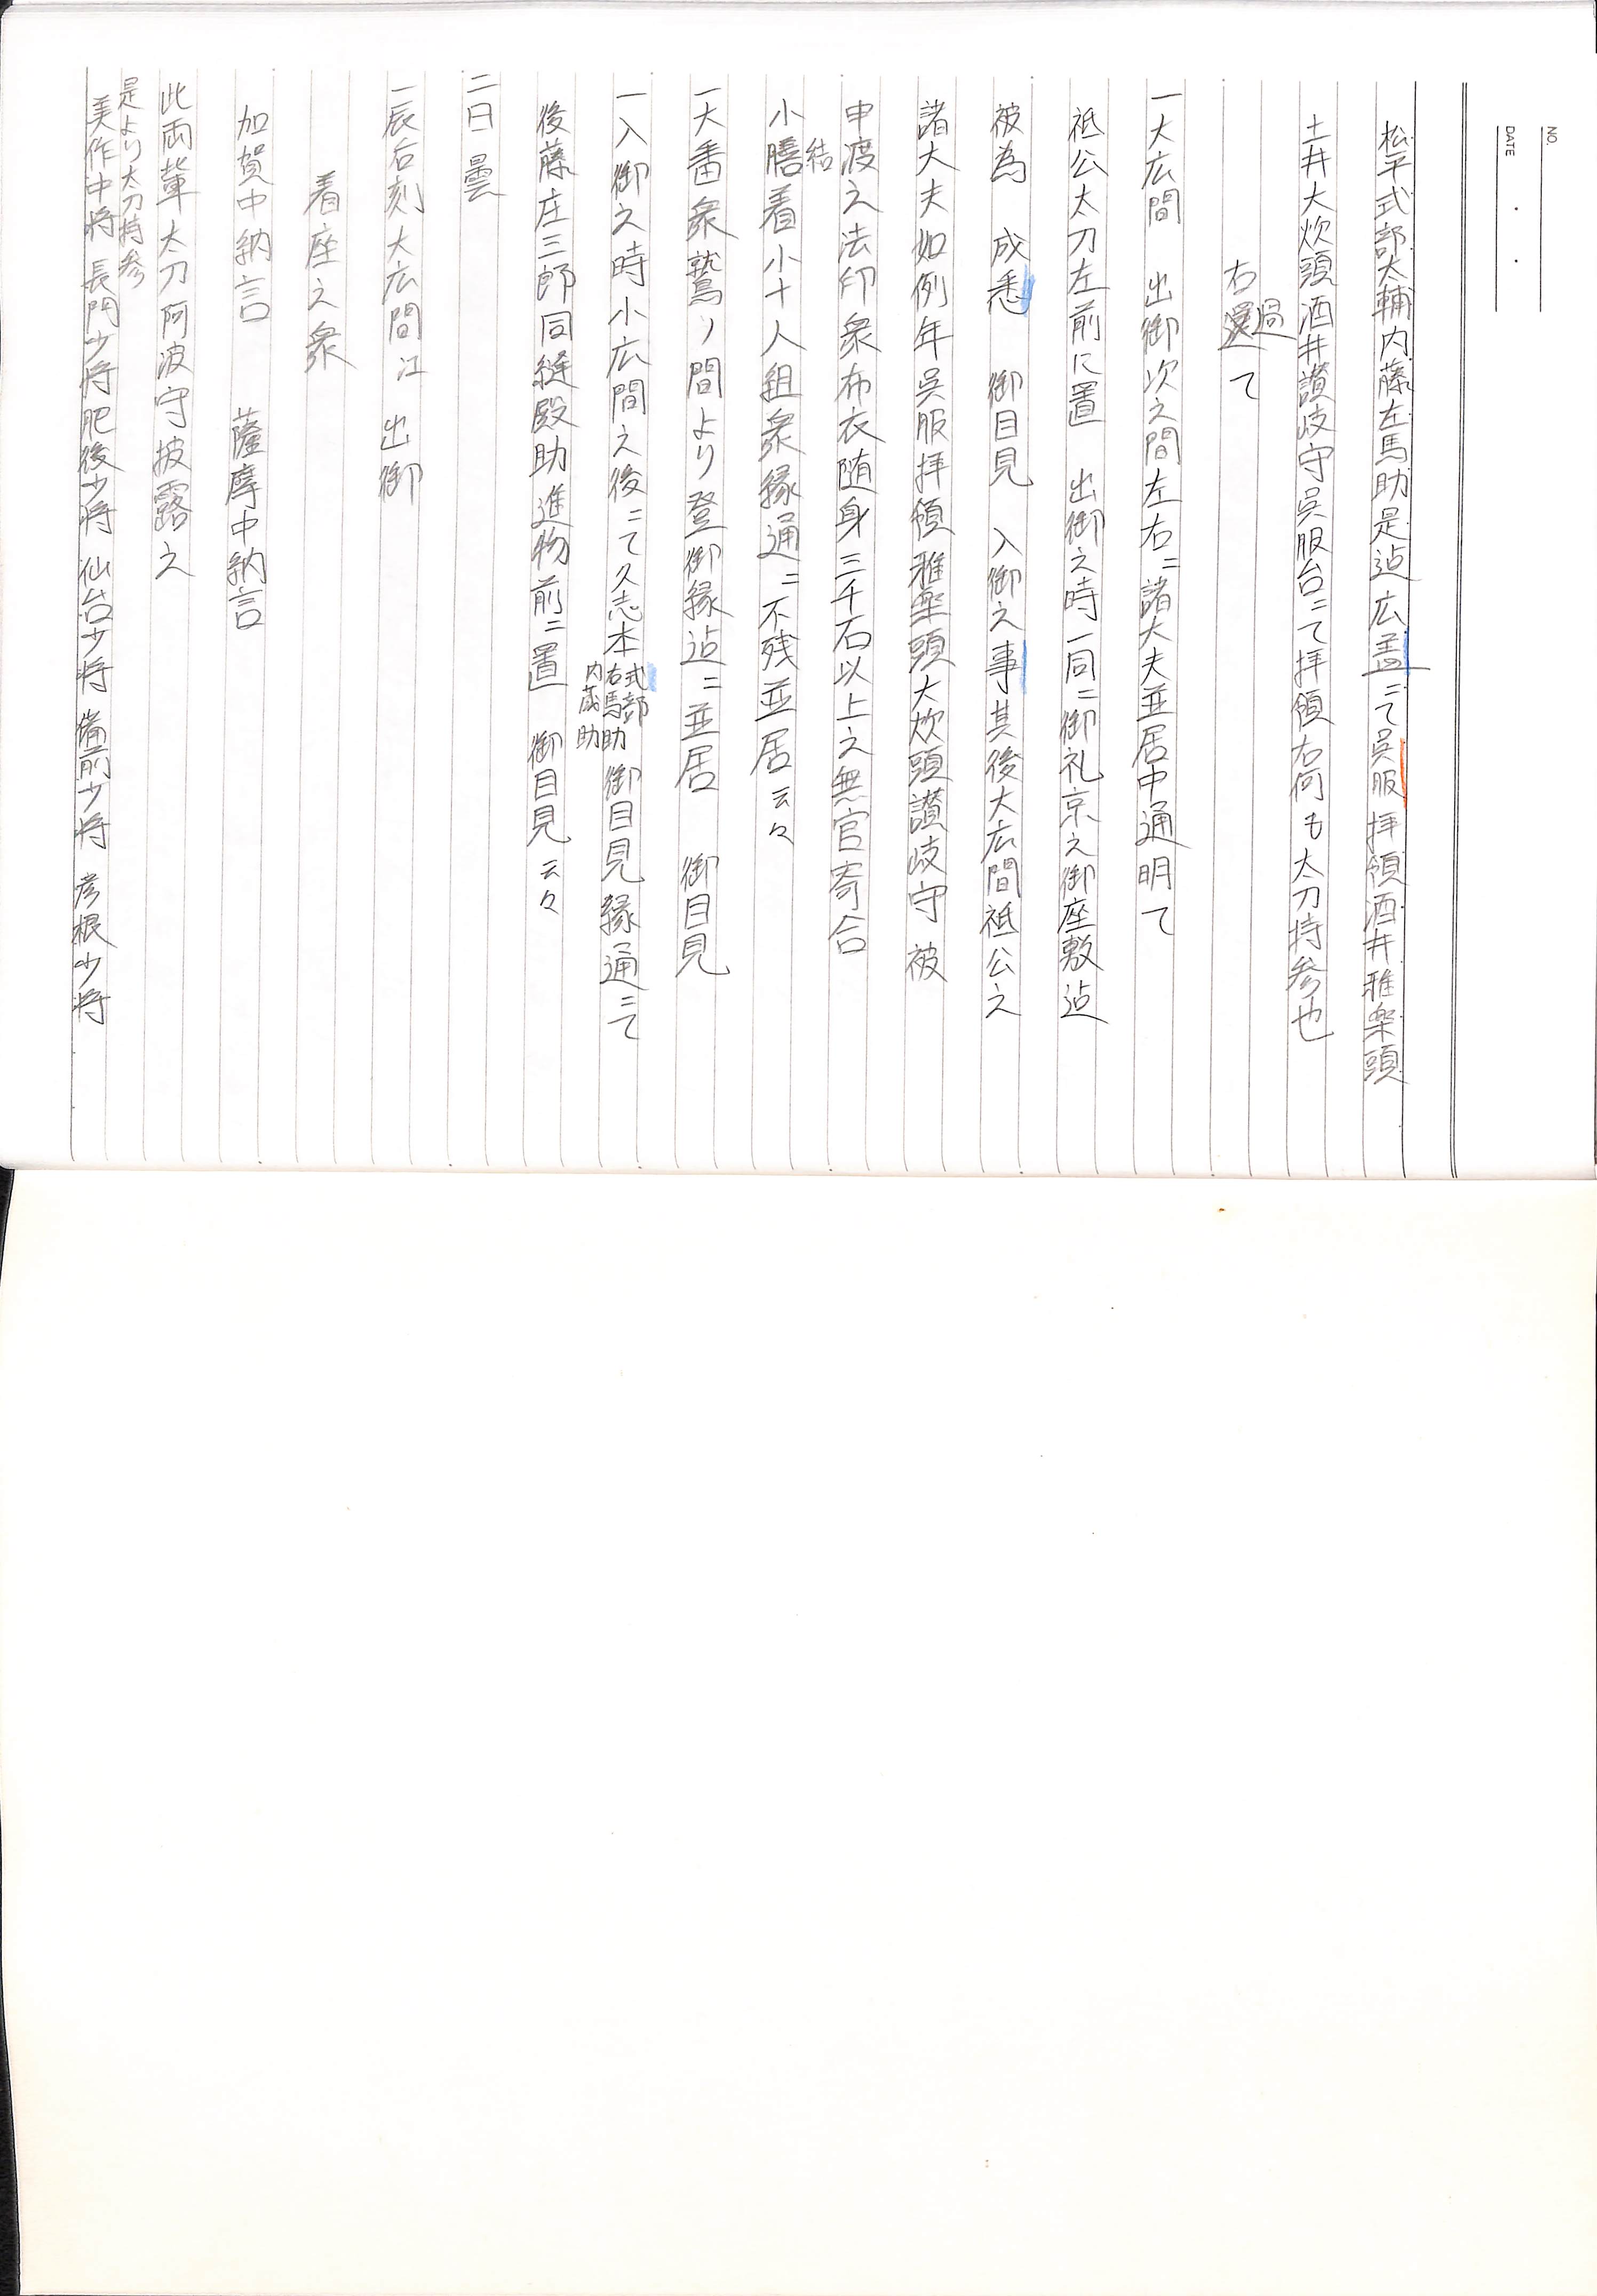 NO.
DATE
松平式部太輔内藤左馬助是迠広盖ニて呉服拝領酒井雅楽頭
土井大炊頭酒井讃岐守呉服台ニて拝領右何も太刀持参也
右還て
過
一大広間 出御次之間左右ニ諸大夫並居中通明て
祗公太刀左前に置 出御之時一同ニ御礼京之御座敷迠
被為 成悉 御目見 入御之事其後大広間祗公之
諸大夫如例年呉服拝領雅楽頭大炊頭讃岐守被
申渡之法印衆布衣随身三千石以上之無官寄合
小膳着小十人組衆縁通ニ不残並居云々
結
一大番衆鷲ノ間より登御縁迠ニ並居 御目見
一入御之時小広間之後ニて久志本式部右馬助内蔵助御目見縁通ニて
後藤庄三郎同縫殿助進物前ニ置 御目見云々
二日 曇
一辰后刻大広間江 出御
着座之衆
加賀中納言 薩摩中納言
此両輩太刀阿波守披露之
是より太刀持参
美作中将 長門少将 肥後少将 仙台少将 備前少将 彦根少将